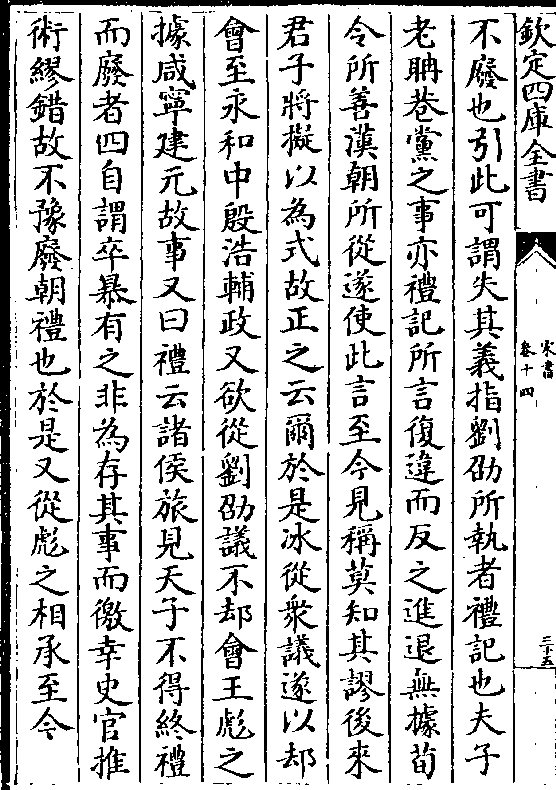 欽定四庫全書
宋書
卷十四
三十五
不廢也引此可謂失其義指劉劭所執者禮記也夫子
老聃巷黨之事亦禮記所言復違而反之進退無據荀
令所善漢朝所從遂使此言至今見稱莫知其謬後來
君子將擬以為式故正之云爾於是冰從衆議遂以却
會至永和中殷浩輔政又欲從劉劭議不却會王彪之
據咸寧建元故事又曰禮云諸侯旅見天子不得終禮
而廢者四自謂卒暴有之非為存其事而徼幸史官推
術繆錯故不豫廢朝禮也於是又從彪之相承至今